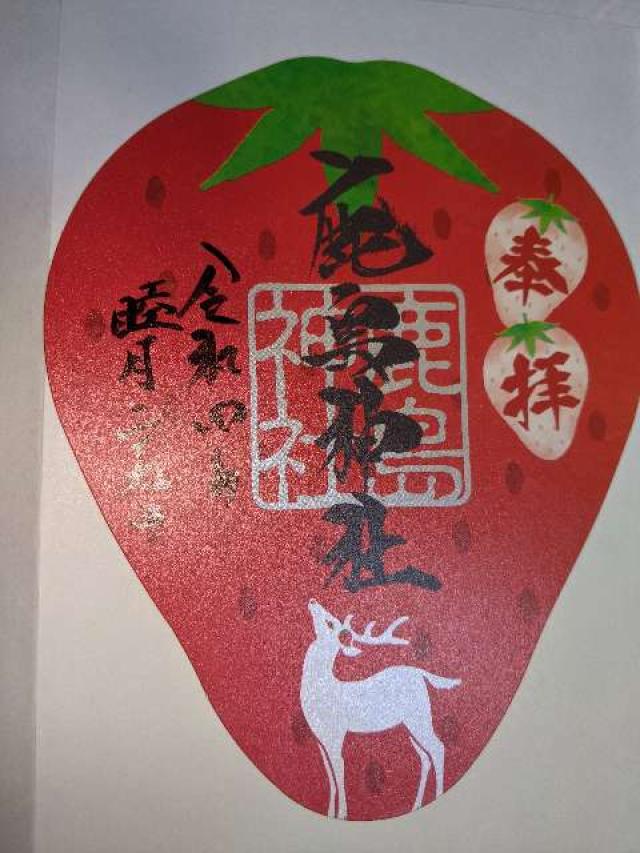 奉拝
鹿島神社
鹿島神社
令和四年
睦月二十九日